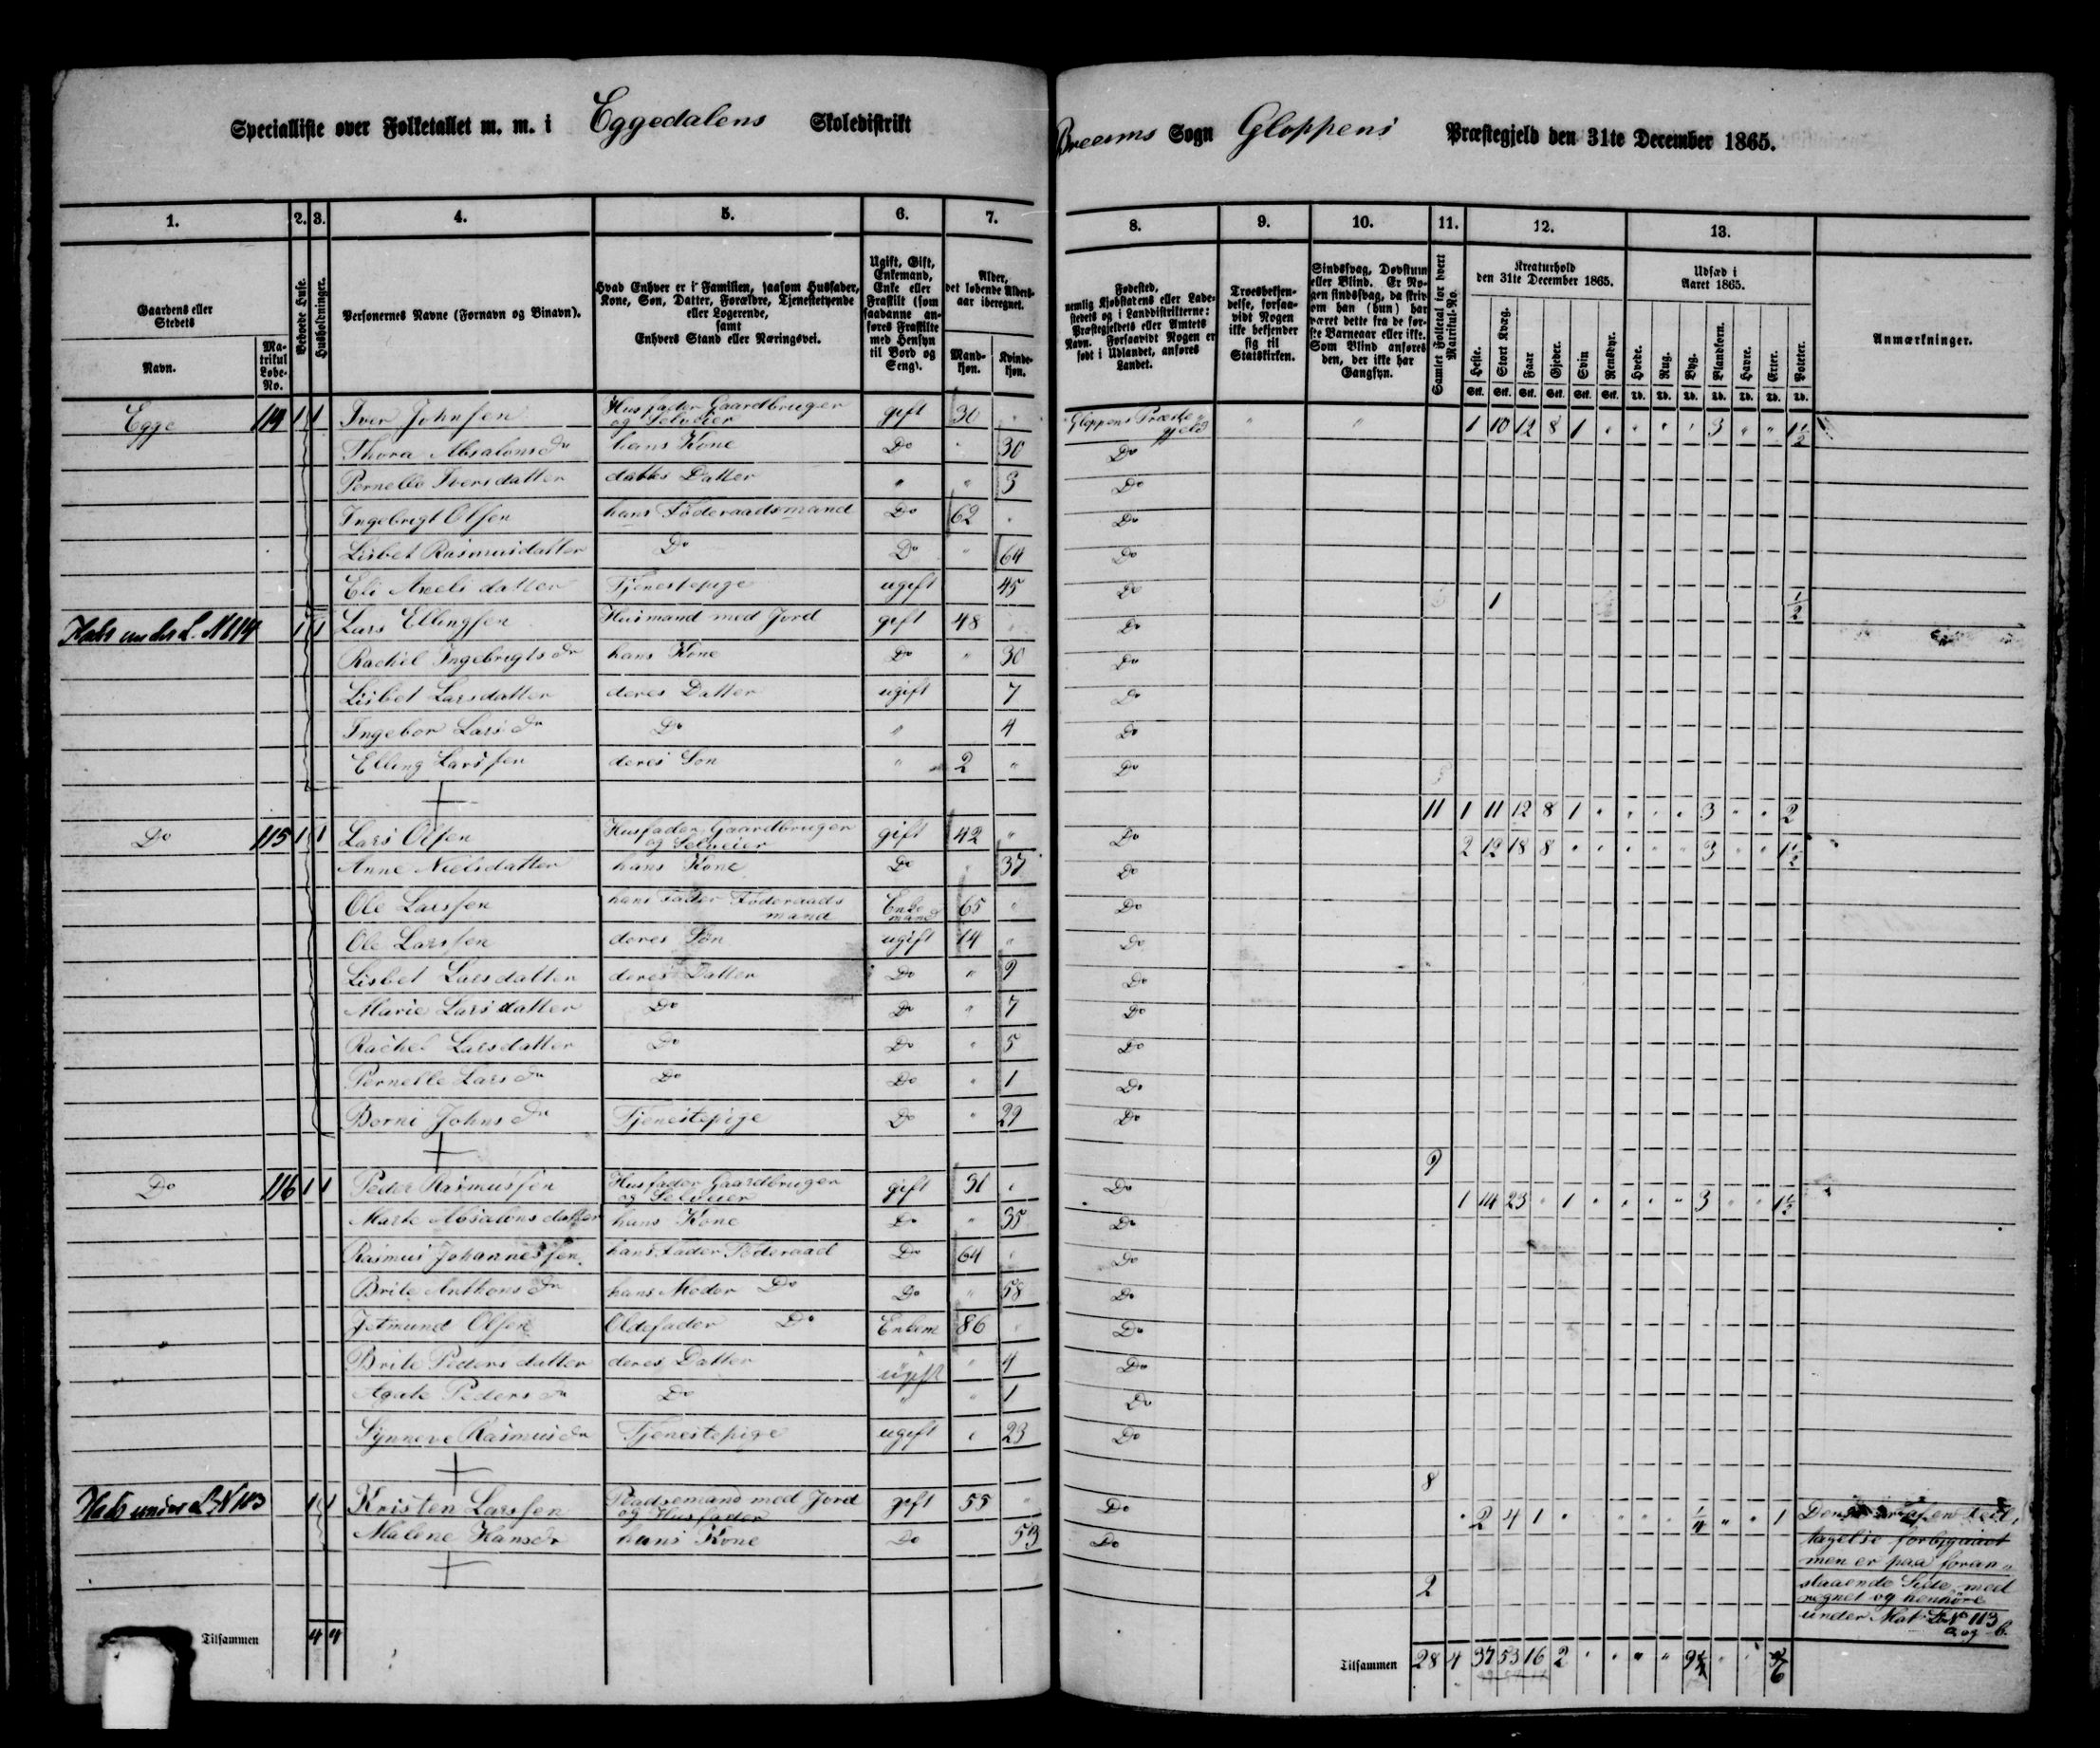 Specialliste over Folketallet m. m. i Eggedalens Skoledistrikt
Breems Sogn Gloppens Præstegjeld den 31te December 1865.
1. 2. 3. 4. 5. 6. 7. 8. 9. 10. 11. 12. 13.
Gaardens eller Stedets
Navn.
Matrikul Løbe-No.
Beboede Huse.
Husholdninger.
Personernes Navne (Fornavn og Binavn).
Hvad Enhver er i Familien, saasom Husfader, Kone, Søn, Datter, Forældre, Tjenestetyende eller Logerende, samt Enhvers Stand eller Næringsvei.
Ugift, Gift, Enkemand, Enke eller Fraskilt (som saadanne anføres Fraskilte med Hensyn til Bord og Seng).
Alder, det løbende Aldersaar iberegnet.
Mandkjøn. Kvindekjøn.
Fødested, nemlig Kjøbstadens eller Ladestedets og i Landdistrikterne: Præstegjeldets eller Amtets Navn. Forsaavidt Nogen er født i Udlandet, anføres Landet.
Troesbekjendelse, forsaavidt Nogen ikke bekjender sig til Statskirken.
Sindssvag, Døvstum eller Blind. Er Nogen sindssvag, da skrives om han (hun) har været dette fra de første Barneaar eller ikke. Som Blind anføres den, der ikke har Gangsyn.
Samlet Folketal for hvert Matrikul-No.
Kreaturhold den 31te December 1865.
Heste. Stort Kvæg. Faar Gjeder. Svin Rensdyr.
Stk. Stk. Stk. Stk. Stk. Stk.
Udsæd i Aaret 1865.
Hvede. Rug. Byg. Blandkorn. Havre. Erter. Poteter.
Td. Td. Td. Td. Td. Td. Td.
Anmærkninger.
Egge 114 1 1 Iver Johnsen Husfader Gaardbruger og Selveier gift 30 " Gloppens Præstegjeld " " 1 10 12 8 1 " " " " 3 " " 1½
Thora Absalonsdr hans Kone Do " 30 Do
Pernelle Iversdatter deres Datter " " 3 Do
Ingebrigt Olsen hans Føderaadsmand Do 62 " Do
Lisbet Rasmusdatter Do Do " 64 Do
Eli Axelsdatter Tjenestepige ugift 45 Do
Hals under L. N 114 1 1 Lars Ellingsen Husmand med Jord gift 48 Do 1 ½
Rachel Ingebrigtsdr hans Kone Do " 30 Do
Lisbet Larsdatter deres Datter ugift 7 Do
Ingebor Larsdr Do " 4 Do
Elling Larssen deres Søn " 2 " Do
11 1 11 12 8 1 " " " " 3 " " 2
Do 115 1 1 Lars Olsen Husfader Gaardbruger og Selveier gift 42 " Do 2 12 18 8 " " " " " 3 " " 1½
Anne Nielsdatter hans Kone Do " 37 Do
Ole Larssen hans Fader Føderaadsmand Enkemand 65 " Do
Ole Larssen deres Søn ugift 14 " Do
Lisbet Larsdatter deres Datter Do " 9 Do
Marie Larsdatter Do Do " 7 Do
Rachel Larsdatter Do Do " 5 Do
Pernelle Larsdr Do Do " 1 Do
Borni Johnsdr Tjenestepige Do " 29 Do
9
Do 116 1 1 Peder Rasmussen Husfader Gaardbruger og Selveier gift 31 " Do 1 14 23 " 1 " " " " 3 " " 1½
Marte Absalonsdatter hans Kone Do " 35 Do
Rasmus Johannessen hans Fader Føderaad Do 64 " Do
Brite Anthonsdr hans Moder Do Do " 58 Do
Jetmund Olsen Oldefader Do Enkem 86 " Do
Brite Pedersdatter deres Datter ugift " 4 Do
Agate Pedersdr Do " " 1 Do
Synneve Rasmusdr Tjenestepige ugift " 23 Do
8
Hals under L N 113 1 1 Kristen Larssen Pladsemand med Jord og Husfader gift 55 " Do " 2 4 1 " " " " ¼ " " 1
Malene Hansdr hans Kone Do 53 Do
tagelse forbigaaet
men er paa foran-
staaende Side med
regnet og henhøre
under Mat. L No 113
a og b.
2
Tilsammen 4 4
Tilsammen 28 4 37 53 16 2 " " " " 9¼ " " 6